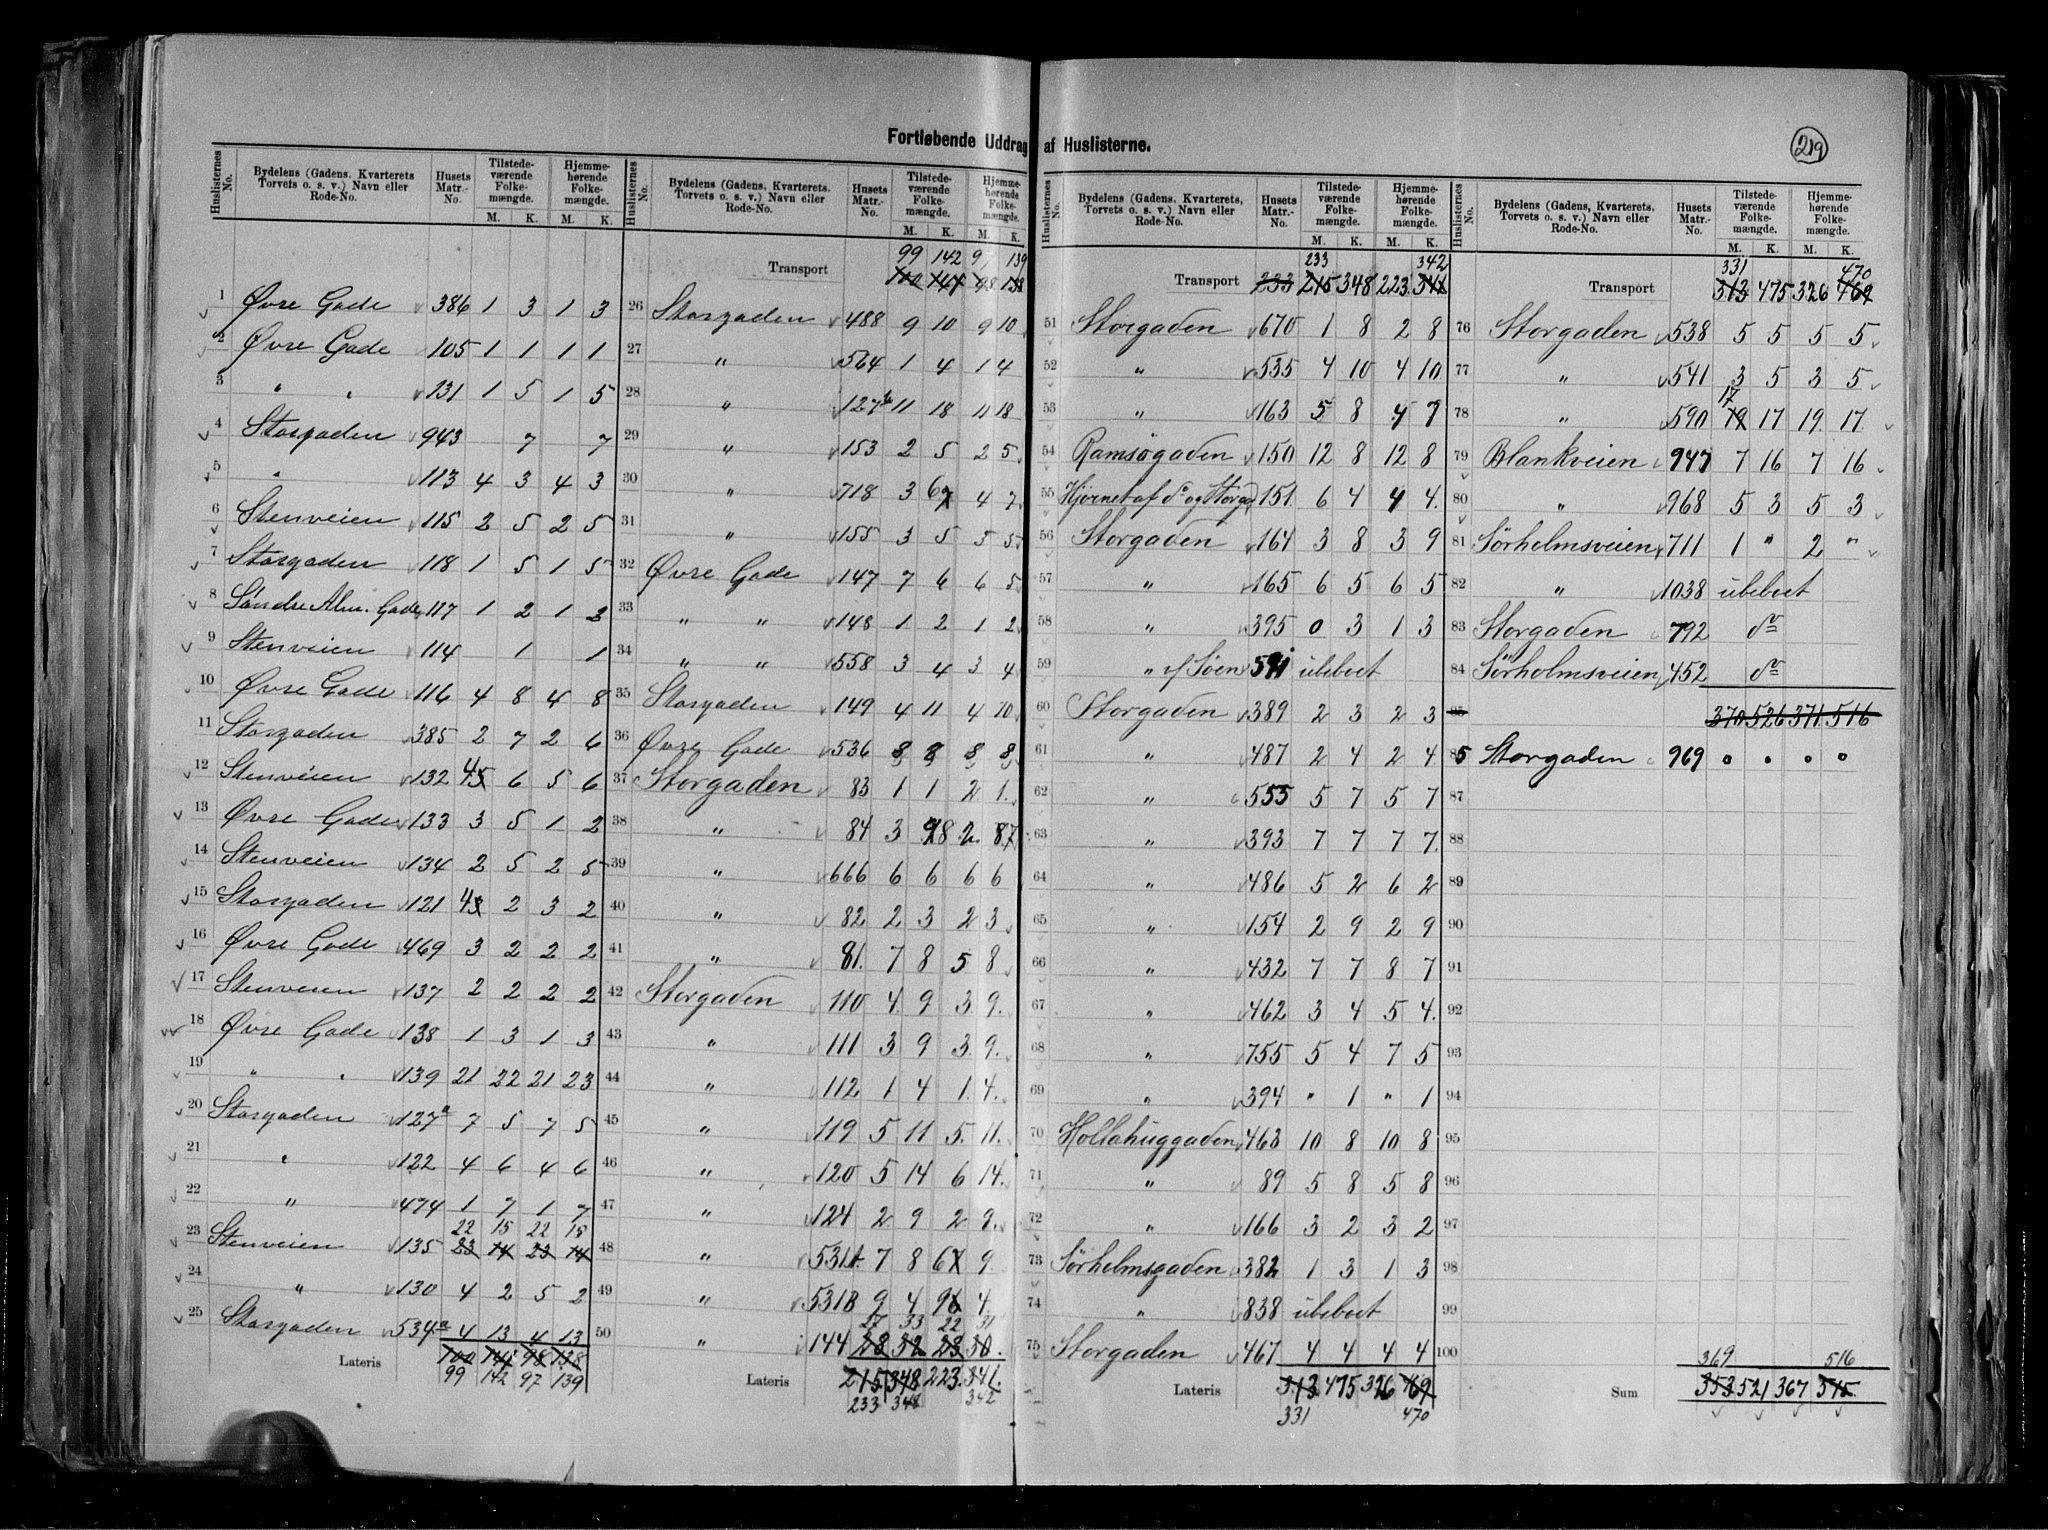 Fortløbende Uddrag af Huslisterne.
219
Huslisternes No. | Bydelens (Gadens, Kvarterets Torvets o. s. v.) Navn eller Rode-No. | Husets Matr.-No. | Tilstedeværende Folkemængde. M. K. | Hjemmehørende Folkemængde. M. K.
1 Øvre Gade 386 1 3 1 3
2 Øvre Gade 105 1 1 1 1
3 " " 231 1 5 1 5
4 Storgaden 943 7 7
5 " 113 4 3 4 3
6 Stenveien 115 2 5 2 5
7 Storgaden 118 1 5 1 5
8 Søndre Alm. Gade 117 1 2 1 2
9 Stenveien 114 1 1
10 Øvre Gade 116 4 8 4 8
11 Storgaden 385 2 7 2 6
12 Stenveien 132 4 5 6 5 6
13 Øvre Gade 133 3 5 1 2
14 Stenveien 134 2 5 2 5
15 Storgaden 121 4 3 2 3 2
16 Øvre Gade 469 3 2 2 2
17 Stenveien 137 2 2 2 2
18 Øvre Gade 138 1 3 1 3
19 " " 139 21 22 21 23
20 Storgaden 127a 7 5 7 5
21 " 122 4 6 4 6
22 " 474 1 7 1 7
22 15 22 15
23 Stenveien 135 23 14 23 14
24 " 130 4 2 5 2
25 Storgaden 534a 4 13 4 13
Lateris 100 141 98 138
99 142 97 139
Huslisternes No. | Bydelens (Gadens, Kvarterets, Torvets o. s. v.) Navn eller Rode-No. | Husets Matr.-No. | Tilstedeværende Folkemængde. M. K. | Hjemmehørende Folkemængde. M. K.
99 142 97 139
Transport 100 141 98 138
26 Storgaden 488 9 10 9 10
27 " 564 1 4 1 4
28 " 127b 11 18 11 18
29 " 153 2 5 2 5
30 " 718 3 6 7 4 7
31 " 155 3 5 5 5
32 Øvre Gade 147 7 6 6 5
33 " " 148 1 2 1 2
34 " " 558 3 4 3 4
35 Storgaden 149 4 11 4 10
36 Øvre Gade 536 8 8 8 8
37 Storgaden 83 1 1 2 1.
38 " 84 3 9 8 2. 8 7
39 " 666 6 6 6 6
40 " 82 2 3 2 3
41 " 81. 7 8 5 8
42 Storgaden 110 4. 9 3. 9.
43 " 111 3 9 3. 9.
44 " 112 1 4 1. 4.
45 " 119 5 11 5. 11.
46 " 120 5 14 6 14.
47 " 124 2 9 2 9.
48 " 531A 7 8 6 7 9
49 " 531B 9 4 9 6 4.
27 33 22 31
50 " 144 28 32 23 30.
Lateris 215 348 223. 341.
233 348 342
Huslisternes No. | Bydelens (Gadens, Kvarterets, Torvets o. s. v.) Navn eller Rode-No. | Husets Matr.-No. | Tilstedeværende Folkemængde. M. K. | Hjemmehørende Folkemængde. M. K.
233 342
Transport 233 215 348 223 341
51 Storgaden 670 1 8 2 8
52 " 535 4 10 4 10
53 " 163 5 8 4 7
54 Ramsøgaden 150 12 8 12 8
55 Hjørnet af do og Storgd 151. 6 4 4 4.
56 Storgaden 164 3 8 3 9
57 " 165 6 5 6 5
58 " 395 0 3 1 3
59 " v/ Søen 591 ubeboet
60 Storgaden 389 2 3 2 3
61 " 487 2 4 2 4
62 " 555 5 7 5 7
63 " 393 7 7 7 7.
64 " 486 5 2 6 2
65 " 154 2 9 2 9
66 " 432 7 7 8 7
67 " 462 3 4 5 4.
68 " 755 5 4 7 5
69 " 394 " 1 " 1
70 Hollahuggaden 463 10 8 10 8
71 " 89 5 8 5 8
72 " 166 3 2 3 2
73 Sørholmsgaden 382 1 3 1 3
74 " 838 ubeboet
75 Storgaden 467 4 4 4 4
Lateris 313 475 326 469
331 470
Huslisternes No. | Bydelens (Gadens, Kvarterets, Torvets o. s. v.) Navn eller Rode-No. | Husets Matr.-No. | Tilstedeværende Folkemængde. M. K. | Hjemmehørende Folkemængde. M. K.
331 470
Transport 313 475 326 469
76 Storgaden 538 5 5 5 5
77 " 541 3 5 3 5
17
78 " 590 19 17 19. 17.
79 Blankveien 947 7 16 7 16
80 " 968 5 3 5 3
81 Sørholmsveien 711 1 " 2 "
82 " 1038 ubeboet
83 Storgaden 792 do
84 Sørholmsveien 452 do
85 370 526 371 516
85 Storgaden 969 0 0 0 0
87
88
89
90
91
92
93
94
95
96
97
98
99
100
369 516
Sum 353 521 367 515.